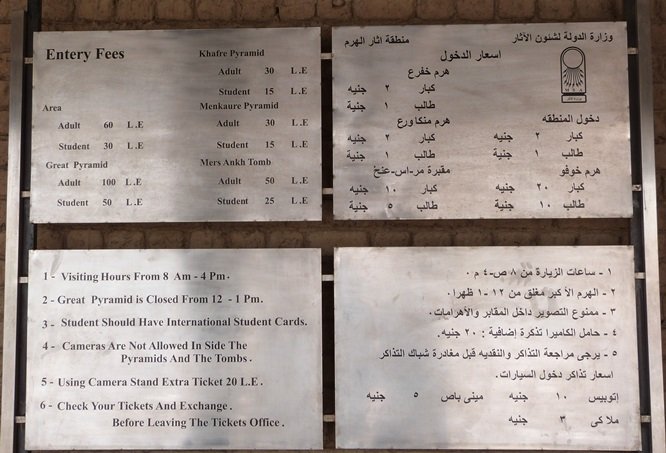 Entery Fees
Area
Adult 60 L.E
Student 30 L.E
Great Pyramid
Adult 100 L.E
Student 50 L.E
Khafre Pyramid
Adult 30 L.E
Student 15 L.E
Menkaure Pyramid
Adult 30 L.E
Student 15 L.E
Mers Ankh Tomb
Adult 50 L.E
Student 25 L.E
وزارة الدولة لشئون الأثار
منطقة اثار الهرم
اسعار الدخول
M S A
دخول المنطقه
كبار ٢ جنيه
طالب ١ جنية
هرم خوفو
كبار ٢٠ جنيه
طالب ١٠ جنية
هرم خفرع
كبار ٢ جنيه
طالب ١ جنية
هرم منكاورع
كبار ٢ جنيه
طالب ١ جنية
مقبرة مر-اس-عنخ
كبار ١٠ جنيه
طالب ٥ جنية
1 - Visiting Hours From 8 Am - 4 Pm.
2 - Great Pyramid is Closed From 12 - 1 Pm.
3 - Student Should Have International Student Cards.
4 - Cameras Are Not Allowed In Side The
Pyramids And The Tombs.
5 - Using Camera Stand Extra Ticket 20 L.E.
6 - Check Your Tickets And Exchange.
Before Leaving The Tickets Office.
١ - ساعات الزيارة من ٨ ص-٤ م.
٢ - الهرم الأكبر مغلق من ١٢ -١ ظهرا.
٣ - ممنوع التصوير داخل المقابر والأهرامات.
٤ - حامل الكاميرا تذكرة إضافية : ٢٠ جنيه.
٥ - يرجى مراجعة التذاكر والنقديه قبل مغادرة شباك التذاكر
اسعار تذاكر دخول السيارات.
إتوبيس ١٠ جنيه مينى باص ٥ جنيه
ملاكى ٣ جنيه